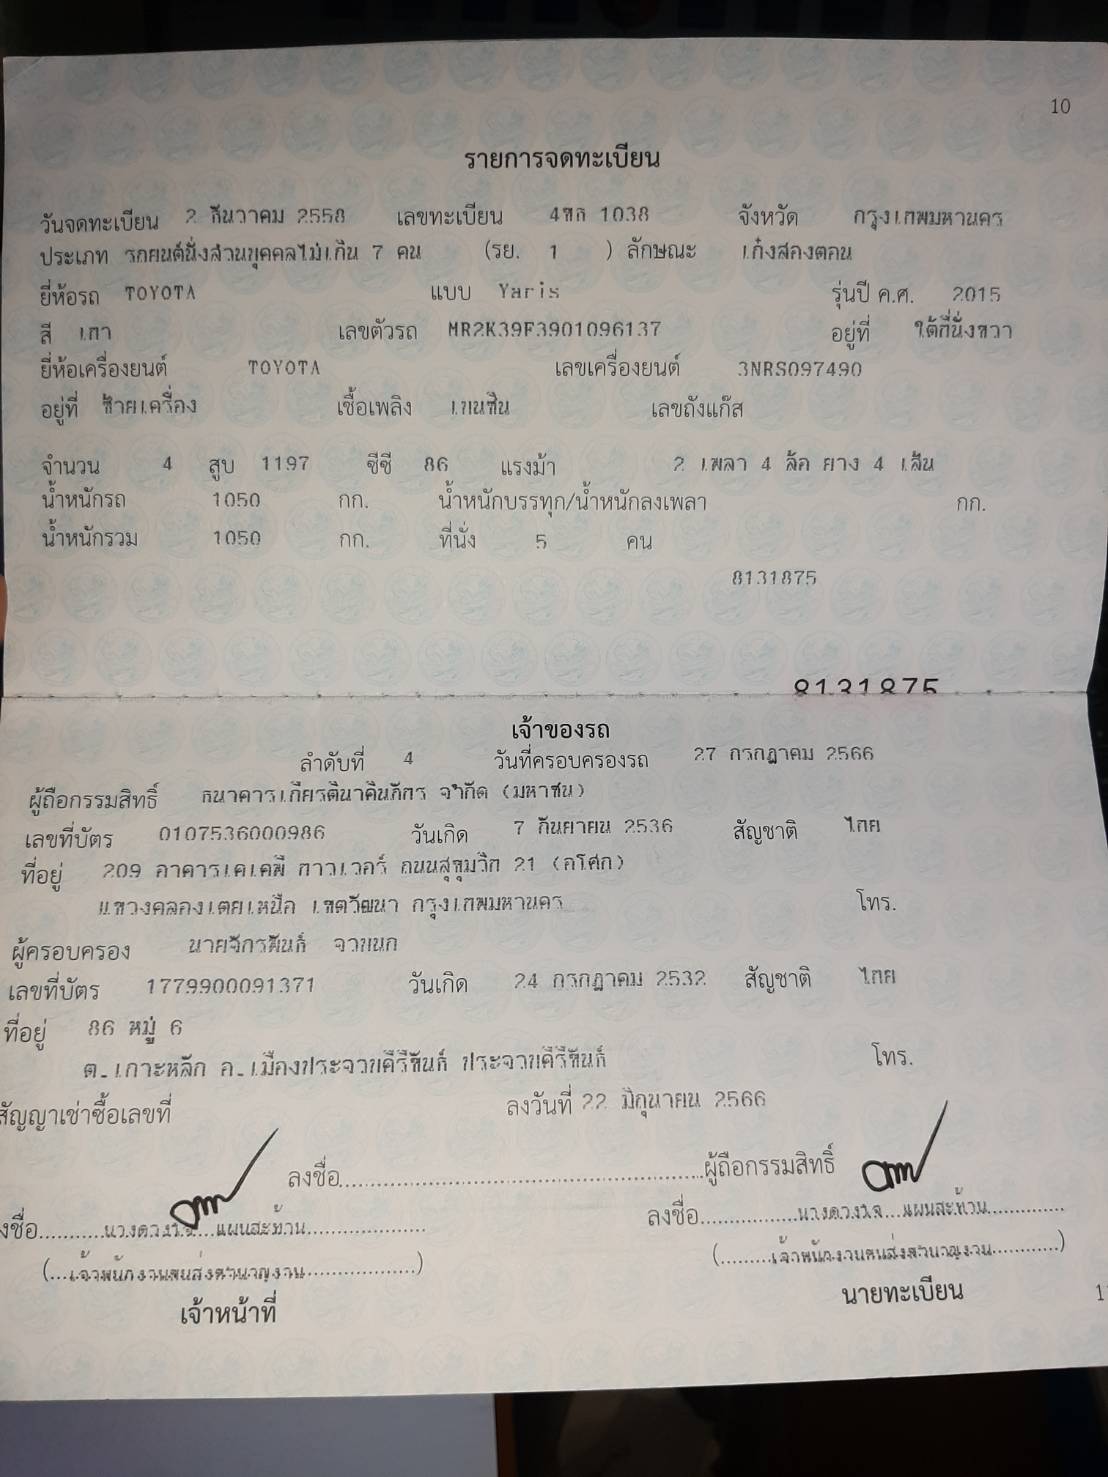 10
รายการจดทะเบียน
วันจดทะเบียน 2 ธันวาคม 2558 เลขทะเบียน 4ขก 1038 จังหวัด กรุงเทพมหานคร
ประเภท รถยนต์นั่งส่วนบุคคลไม่เกิน 7 คน (รย. 1 ) ลักษณะ เก๋งสองตอน
ยี่ห้อรถ TOYOTA แบบ Yaris รุ่นปี ค.ศ. 2015
สี เทา เลขตัวรถ MR2K39F3901096137 อยู่ที่ ใต้ที่นั่งขวา
ยี่ห้อเครื่องยนต์ TOYOTA เลขเครื่องยนต์ 3NRS097490
อยู่ที่ ซ้ายเครื่อง เชื้อเพลิง เบนซิน เลขถังแก๊ส
จำนวน 4 สูบ 1197 ซีซี 86 แรงม้า 2 เพลา 4 ล้อ ยาง 4 เส้น
น้ำหนักรถ 1050 กก. น้ำหนักบรรทุก/น้ำหนักลงเพลา กก.
น้ำหนักรวม 1050 กก. ที่นั่ง 5 คน
8131875
8131875
เจ้าของรถ
ลำดับที่ 4 วันที่ครอบครองรถ 27 กรกฎาคม 2566
ผู้ถือกรรมสิทธิ์ ธนาคารเกียรตินาคินภัทร จำกัด (มหาชน)
เลขที่บัตร 0107536000986 วันเกิด 7 กันยายน 2536 สัญชาติ ไทย
ที่อยู่ 209 อาคารเคเคพี ทาวเวอร์ ถนนสุขุมวิท 21 (อโศก)
แขวงคลองเตยเหนือ เขตวัฒนา กรุงเทพมหานคร โทร.
ผู้ครอบครอง นายจักรพันธ์ จาบนก
เลขที่บัตร 1779900091371 วันเกิด 24 กรกฎาคม 2532 สัญชาติ ไทย
ที่อยู่ 86 หมู่ 6
ต.เกาะหลัก อ.เมืองประจวบคีรีขันธ์ ประจวบคีรีขันธ์ โทร.
สัญญาเช่าซื้อเลขที่ ลงวันที่ 22 มิถุนายน 2566
ลงชื่อ ผู้ถือกรรมสิทธิ์
ลงชื่อ นางดวงใจ แผนสะท้าน ลงชื่อ นางดวงใจ แผนสะท้าน
(เจ้าพนักงานขนส่งชำนาญงาน) (เจ้าพนักงานขนส่งชำนาญงาน)
เจ้าหน้าที่ นายทะเบียน